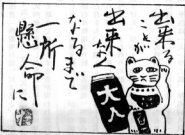 出来る
ことが
出来なく
なるまで
一所
懸命に
大入